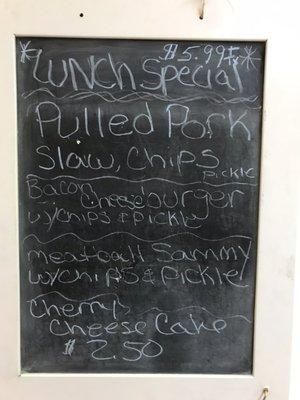 $5.99
Lunch Special
Pulled Pork
Slaw, Chips
pickle
Bacon Cheese burger
w/chips & pickle
meatball Sammy
w/chips & pickle
Cherry
Cheese Cake
$2.50